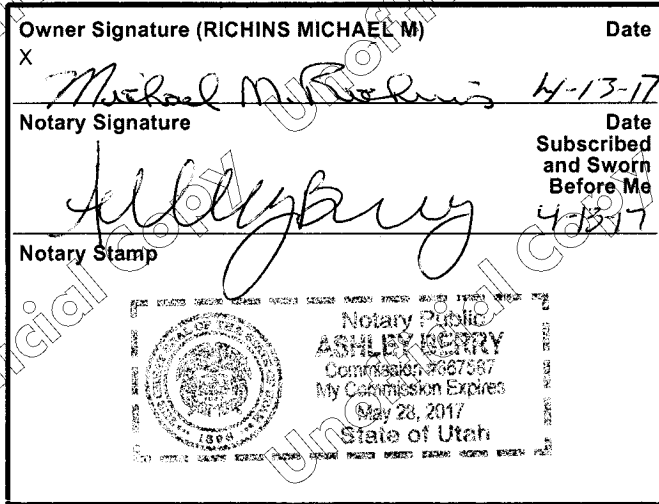 Owner Signature (RICHINS MICHAEL M) Date
X
Michael M. Richins 4-13-17
Notary Signature Date
Subscribed
and Sworn
Before Me
4-13-17
Notary Stamp
Notary Public
ASHLEY BERRY
Commission #667567
My Commission Expires
May 28, 2017
State of Utah
1896
Unofficial Copy
Unofficial Copy